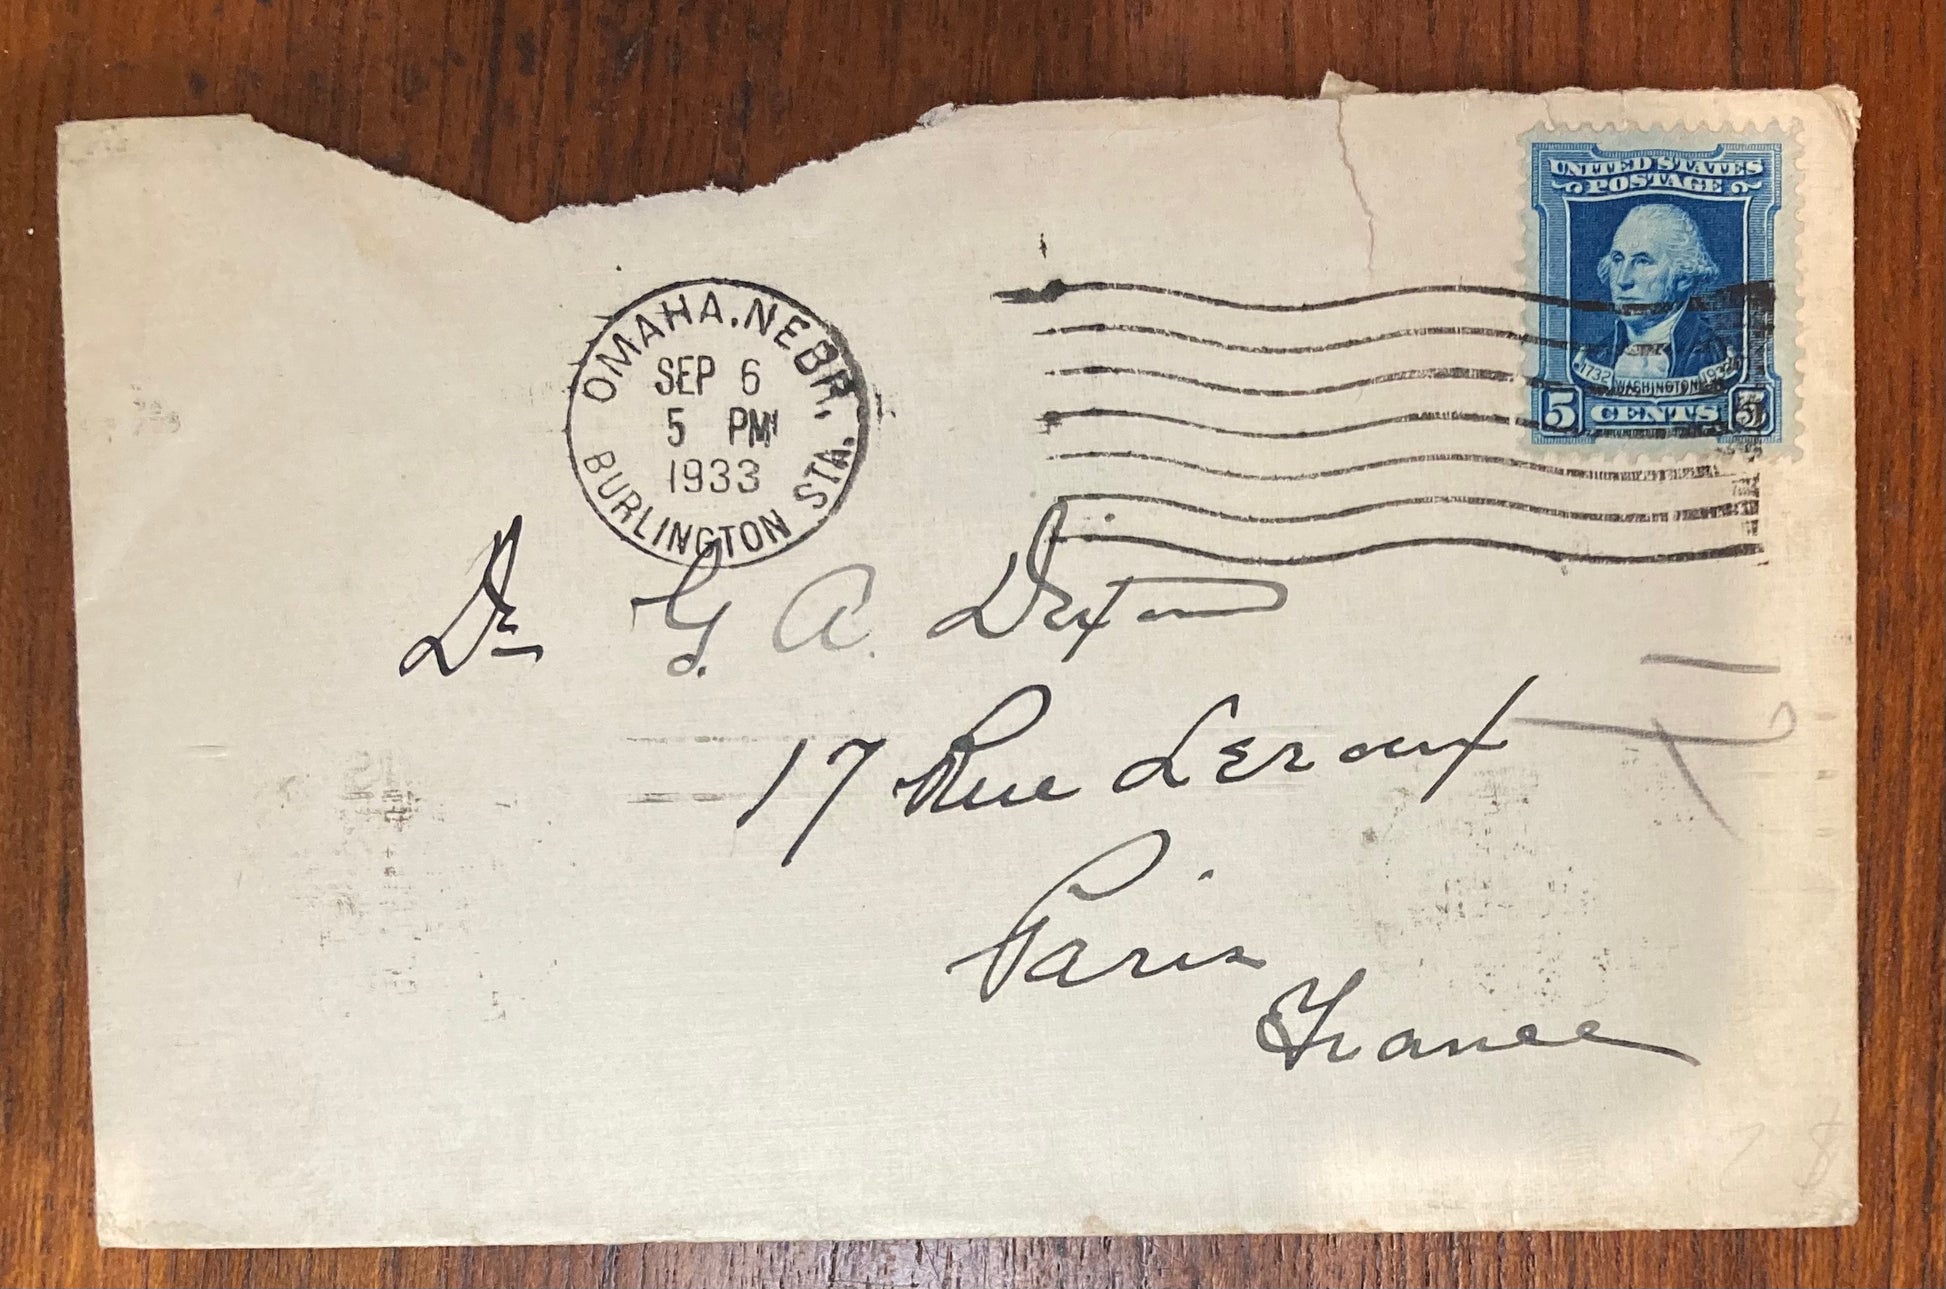 UNITED STATES
POSTAGE
1732 WASHINGTON 1932
5 CENTS 5
OMAHA, NEBR.
SEP 6
5 PM
1933
BURLINGTON STA.
Dr G. A. Dixon
17 Rue Leroux
Paris
France